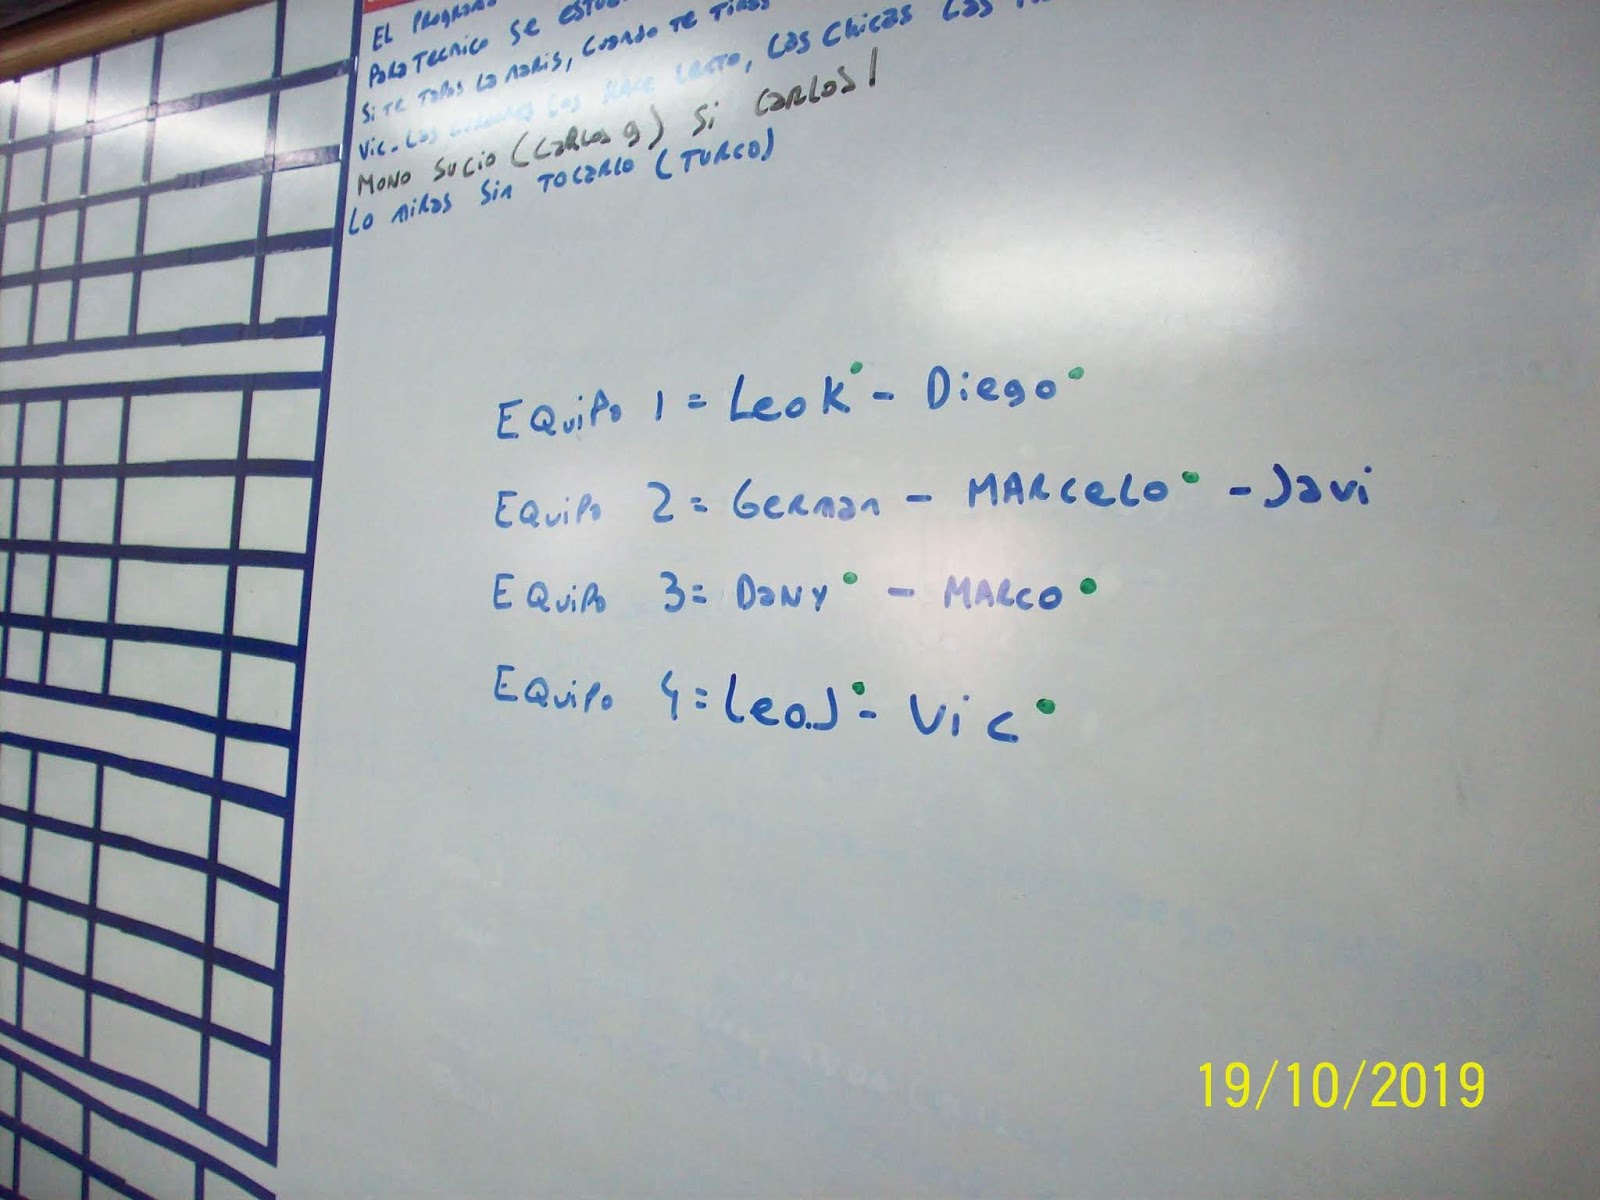 EL PROGRAMA
PARA TECNICO SE
Si TE TAPAS LA NARIS, CUANDO TE TIRAS
Vic. LOS LAS HACE LACTO, LAS CHICAS LAS
MONO SUCIO (CARLOS 9) Si CARLOS!
LO MIRAS Sin TOCARLO (TURCO)
EQUiPo 1 = LeoK - Diego
EQUiPo 2 = German - MARCeLO - Javi
EQUiPo 3 = DANY - MARCO
EQUiPo 4 = LeoJ - Vic
19/10/2019